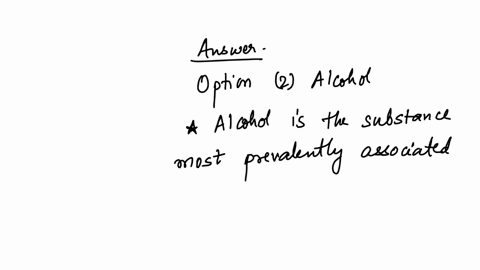 Answer.
Option (2) Alcohol
★ Alcohol is the substance
most prevalently associated